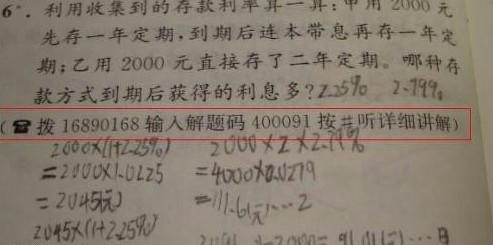 6*. 利用收集到的存款利率算一算:甲用 2000 元
先存一年定期,到期后连本带息再存一年定
期;乙用 2000 元直接存了二年定期。哪种存
款方式到期后获得的利息多? 2.25% 2.79%
(☎拨 16890168 输入解题码 400091 按#听详细讲解)
2000×(1+2.25%)
=2000×1.0225
=2045(元)
2045×(1+2.25%)
2000×2×2.79%
=4000×0.0279
=111.6(元)…2